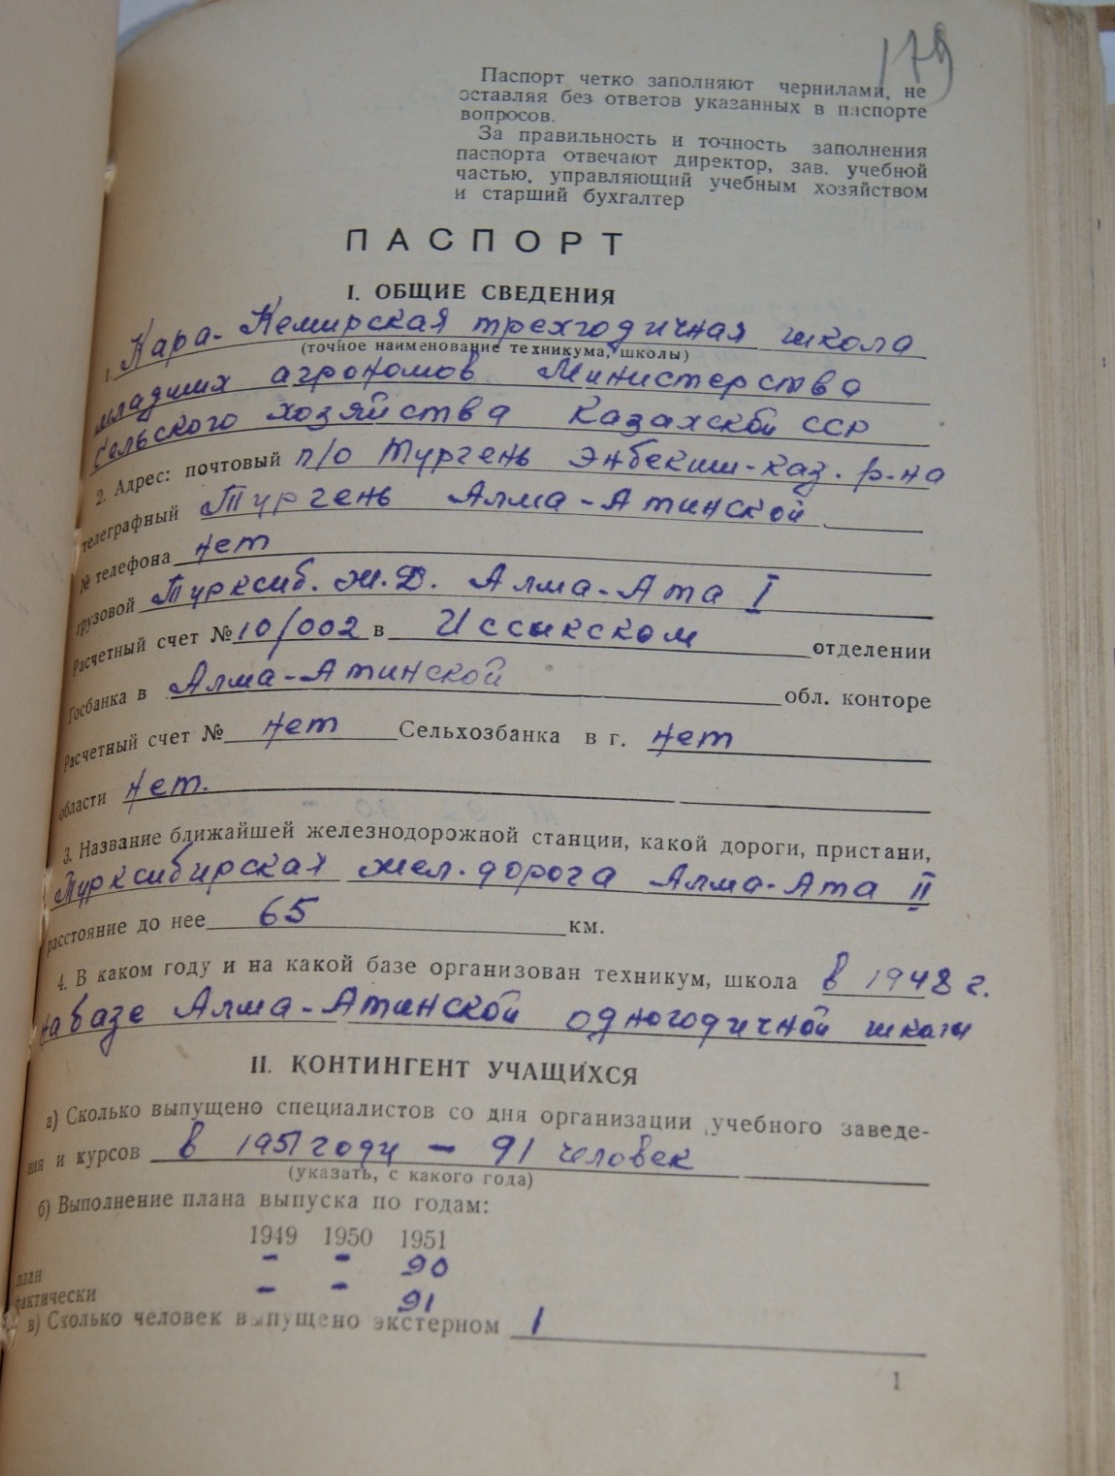 179
Паспорт четко заполняют чернилами, не
оставляя без ответов указанных в паспорте
вопросов.
За правильность и точность заполнения
паспорта отвечают директор, зав. учебной
частью, управляющий учебным хозяйством
и старший бухгалтер
ПАСПОРТ
I. ОБЩИЕ СВЕДЕНИЯ
1. Кара-Кемирская трехгодичная школа
(точное наименование техникума, школы)
младших агрономов Министерства
сельского хозяйства Казахской ССР
2. Адрес: почтовый п/о Тургень Энбекши-каз. р-на
телеграфный Тургень Алма-Атинской
№ телефона нет
грузовой Турксиб. ж.д. Алма-Ата I
Расчетный счет № 10/002 в Иссыкском отделении
Госбанка в Алма-Атинской обл. конторе
Расчетный счет № нет Сельхозбанка в г. нет
области нет.
3. Название ближайшей железнодорожной станции, какой дороги, пристани,
Турксибирская жел. дорога Алма-Ата II
расстояние до нее 65 км.
4. В каком году и на какой базе организован техникум, школа в 1948 г.
на базе Алма-Атинской одногодичной школы
II. КОНТИНГЕНТ УЧАЩИХСЯ
а) Сколько выпущено специалистов со дня организации учебного заведе-
ния и курсов в 1951 году — 91 человек
(указать, с какого года)
б) Выполнение плана выпуска по годам:
1949 1950 1951
план - - 90
фактически - - 91
в) Сколько человек выпущено экстерном 1
1